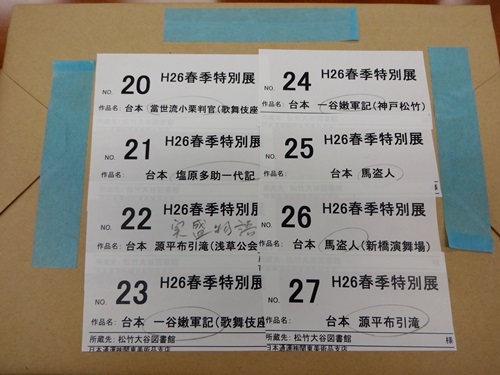 NO. 20 H26春季特別展
作品名: 台本 當世流小栗判官(歌舞伎座
NO. 21 H26春季特別展
作品名: 台本 塩原多助一代記
NO. 22 H26春季特別展
実盛物語
作品名: 台本 源平布引滝(浅草公会
NO. 23 H26春季特別展
作品名: 台本 一谷嫩軍記(歌舞伎座
所蔵先: 松竹大谷図書館
日本通運㈱関東美術品支店
NO. 24 H26春季特別展
作品名: 台本 一谷嫩軍記(神戸松竹)
NO. 25 H26春季特別展
作品名: 台本 馬盗人
NO. 26 H26春季特別展
作品名: 台本 馬盗人(新橋演舞場)
NO. 27 H26春季特別展
作品名: 台本 源平布引滝
所蔵先: 松竹大谷図書館 様
日本通運㈱関東美術品支店